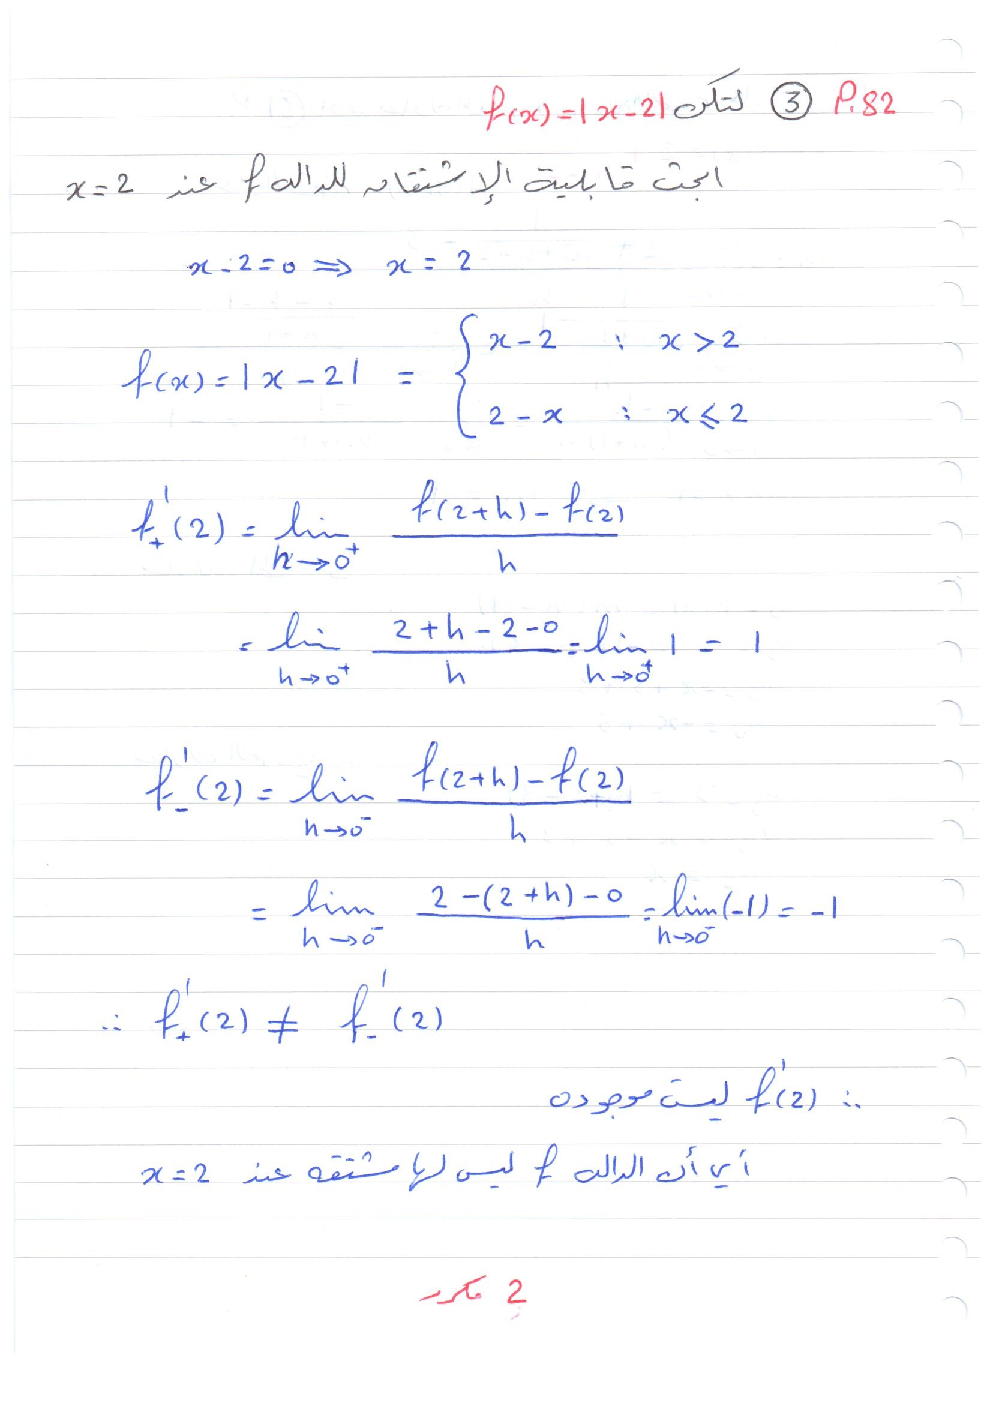 P.82 ③ لتكن f(x)=|x-2|
ابحث قابلية الإشتقاق للداله f عند x=2
x-2=0 ⇒ x = 2
f(x)=|x-2| = { x-2 ; x>2
2-x ; x⩽2
f₊'(2) = lim h→0⁺ (f(2+h)-f(2))/h
= lim h→0⁺ (2+h-2-0)/h = lim h→0⁺ 1 = 1
f₋'(2) = lim h→0⁻ (f(2+h)-f(2))/h
= lim h→0⁻ (2-(2+h)-0)/h = lim h→0⁻ (-1) = -1
∴ f₊'(2) ≠ f₋'(2)
∴ f'(2) ليست موجوده
أي أن الداله f ليس لها مشتقه عند x=2
2 مكرر